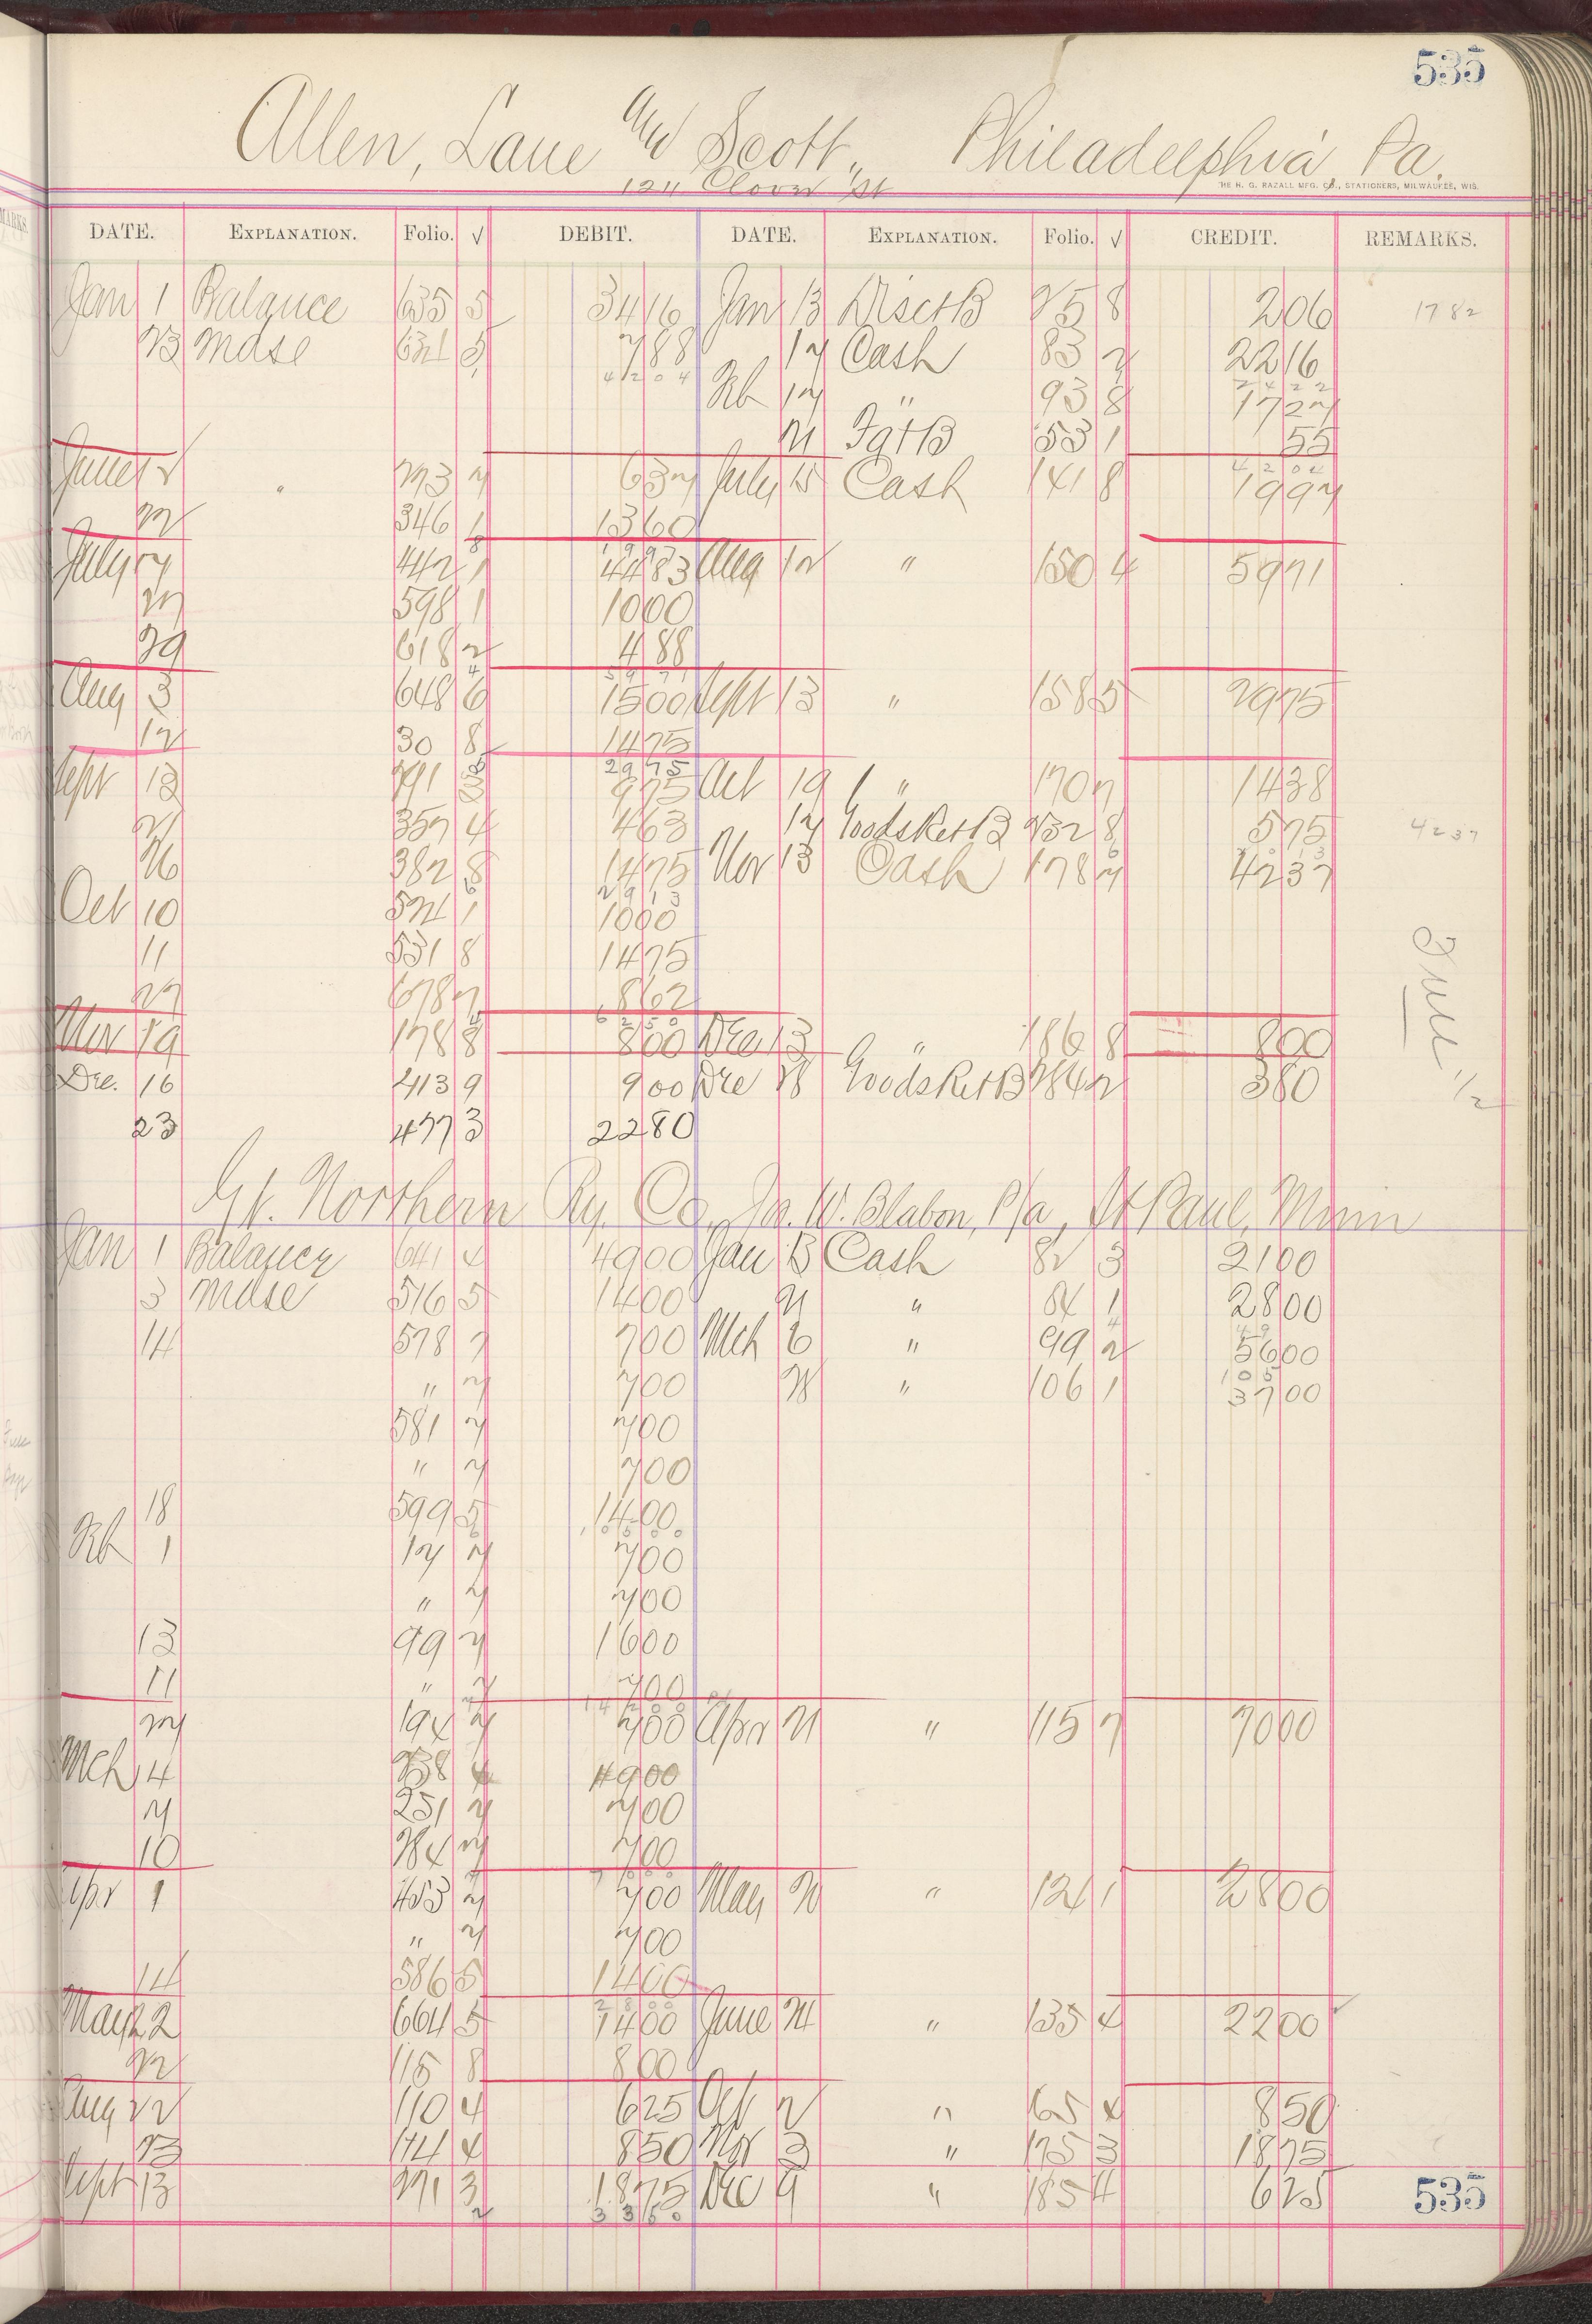 535
Allen, Lane and Scott, Philadelphia, Pa.
124 Clover St
THE H. G. RAZALL MFG. CO., STATIONERS, MILWAUKEE, WIS.
DATE. EXPLANATION. Folio. √ DEBIT. DATE. EXPLANATION. Folio. √ CREDIT. REMARKS.
Jan 1 Balance 635 5 3416 Jan 13 Disct B 258 206 1782
23 Mdse 631 5 788 17 Cash 83 7 2216
4204 2422
Feb 17 " 93 8 1727
21 Frt B 53 1 55
4204
June 2 273 7 637 July 15 Cash 141 8 1997
22 346 1 1360
1997
July 7 442 1 4483 Aug 12 " 150 4 5971
27 598 1 1000
29 618 2 488
5971
Aug 3 648 6 1500 Sept 13 " 158 5 2975
12 30 8 1475
2975
Sept 13 291 3 975 Oct 19 " 170 7 1438
21 357 4 463 17 Goods Ret B 232 8 575 4237
26 382 8 1475 Nov 13 Cash 178 7 4237
2913
Oct 10 521 1 1000
11 531 8 1475
27 678 7 862
6250
Nov 19 178 8 800 Dec 13 " 186 8 800
Dec. 16 413 9 900 Dec 28 Goods Ret B 284 2 380
23 477 3 2280
Gt. Northern Ry. Co, Jos. W. Blabon, P/a, St Paul, Minn
Jan 1 Balance 641 4 4900 Jan 13 Cash 82 3 2100
3 Mdse 516 5 1400 21 " 84 1 2800
49
14 578 7 700 Mch 6 " 99 2 5600
105
" 7 700 28 " 106 1 3700
581 7 700
" 7 700
18 599 5 1400
Feb 1 17 7 700
" 7 700
13 99 7 1600
11 " 7 700
14200
27 194 7 700 Apr 21 " 115 7 7000
Mch 4 238 4 4900
7 251 7 700
10 284 7 700
7000
Apr 1 453 7 700 May 20 " 124 1 2800
" 7 700
14 586 5 1400
2800
May 22 664 5 1400 June 24 " 135 4 2200
22 115 8 800
Aug 22 110 4 625 Oct 2 " 165 4 850
23 174 4 850 Nov 3 " 175 3 1875
Sept 13 291 3 1875 Dec 9 " 185 4 625
3350
535